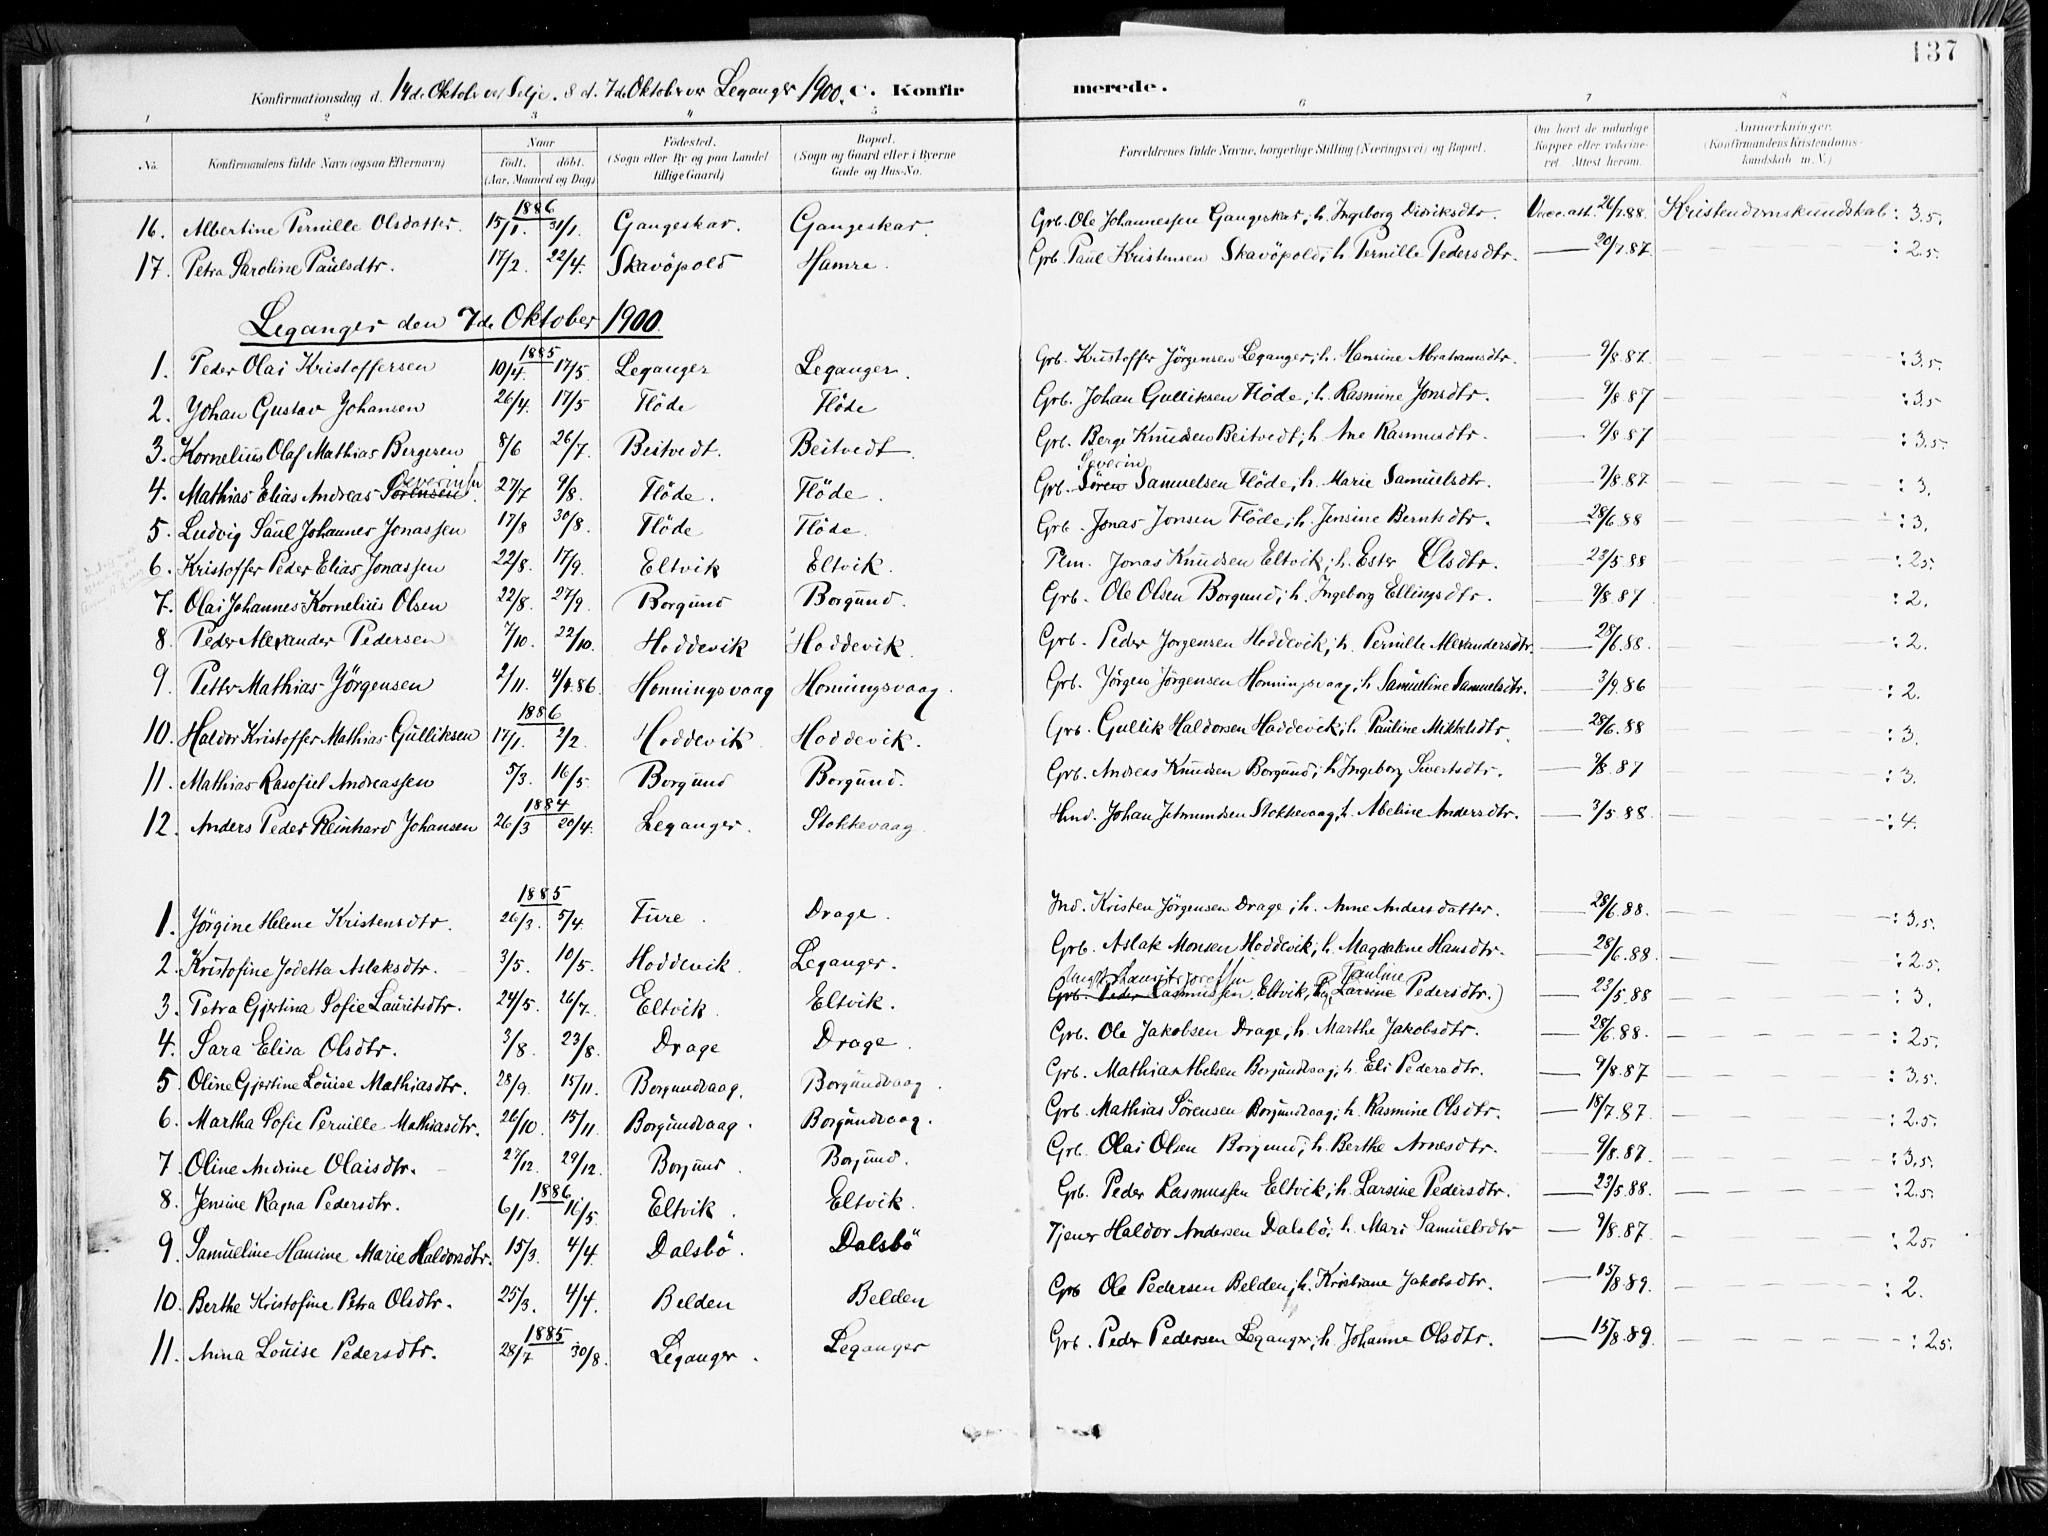 137
Konfirmationsdag d. 14de Oktober Selje. & d. 7de Oktober Leganger 1900. C. Konfirmerede.
1 2 3 4 5 6 7 8
No. Konfirmandens fulde Navn (ogsaa Efternavn) Naar født, døbt. (Aar, Maaned og Dag) Fødested. (Sogn eller By og paa Landet tillige Gaard) Bopæl. (Sogn og Gaard eller i Byerne Gade og Hus-No. Forældrenes fulde Navne, borgerlige Stilling (Næringsvei) og Bopæl. Om havt de naturlige Kopper eller vaccineret. Attest herom. Anmærkninger. (Konfirmandens Kristendomskundskab m. V.)
1886
16. Albertine Pernille Olsdatter. 15/1. 31/1. Gangeskar. Gangeskar. Grb. Ole Johannessen Gangeskar; h. Ingeborg Didriksdtr. Vacc. att. 26/7.88. Kristendomskundskab : 3.5.
17. Petra Saroline Paulsdtr. 17/2. 22/4. Skavöpold Hamre. Grb. Paul Kristensen Skavöpold; h. Pernille Pedersdtr. — 20/7.87. : 2.5.
Leganger den 7de Oktober 1900.
1885
1. Peder Olai Kristoffersen 10/4. 17/5. Leganger Leganger. Grb. Kristoffer Jörgensen Leganger; h. Hansine Abrahamsdtr. — 9/8.87. : 3.5.
2. Johan Gustav Johansen 26/4. 17/5 Flöde Flöde Grb. Johan Gulliksen Flöde; h. Rasmine Jonsdtr. — 9/8.87 : 3.5
3. Kornelius Olaf Mathias Bergesen 8/6 26/7. Beitvedt. Beitvedt. Grb. Berge Knudsen Beitvedt; h. Ane Rasmusdtr. — 9/8.87 : 3.5.
4. Mathias Elias Andreas Sörensen Severinsen. 27/7 9/8. Flöde. Flöde. Grb. Sören Severin Samuelsen Flöde; h. Marie Samuelsdtr. — 9/8.87 : 3.
5. Ludvig Paul Johannes Jonassen 17/8 30/8. Flöde Flöde. Grb. Jonas Jonsen Flöde; h. Jensine Berntsdtr. — 28/6.88 : 3.
6. Kristoffer Peder Elias Jonassen 22/8. 17/9. Eltvik Eltvik. Plm. Jonas Knudsen Eltvik; h. Ester Olsdtr. — 23/5.88 : 2.5.
7. Olai Johannes Kornelius Olsen 22/8. 27/9. Borgund Borgund. Grb. Ole Olsen Borgund; h. Ingeborg Ellingsdtr. — 9/8.87 : 2.
8. Peder Alexander Pedersen 7/10. 22/10. Hoddevik Hoddevik. Grb. Peder Jorgensen Hoddevik; h. Pernille Alexandersdtr. — 28/6.88. : 2.
9. Petter Mathias Jörgensen 2/11. 4/4.86. Honningsvaag Honningsvaag. Grb. Jörgen Jörgensen Honningsvaag; h. Samueline Samuelsdtr. — 3/9.86 : 2.
1886
10. Haldor Kristoffer Mathias Gulliksen 17/1. 2/2. Hoddevik Hoddevik. Grb. Gullik Haldorsen Hoddevik; h. Pauline Mikkelsdtr. — 28/6.88 : 3.
11. Mathias Rasofiel Andreassen 5/3. 16/5. Borgund Borgund. Grb. Andreas Knudsen Borgund; h. Ingeborg Sivertsdtr. — 9/8.87 : 3.
1884
12. Anders Peder Reinhard Johansen 26/3 20/4. Leganger. Stokkevaag. Hmd. Johan Jetmundsen Stokkevaag; h. Abeline Andersdtr. — 3/5.88. : 4.
1885
1. Jörgine Helene Kristensdtr. 26/3. 5/4. Fure. Drage. Ind. Kristen Jörgensen Drage; h. Anne Andersdatter. — 28/6.88. : 3.5.
2. Kristofine Jodetta Aslaksdtr. 3/5. 10/5. Hoddevik. Leganger. Grb. Aslak Monsen Hoddevik; h. Magdalene Hansdtr. — 28/6.88 : 2.5.
3. Petra Gjertina Sofie Lauritsdtr. 24/5. 26/7. Eltvik. Eltvik. Grb. Peder Rasmussen Eltvik, Larsine Pauline Pedersdtr.) — 23/5.88 : 3.
4. Sara Elisa Olsdtr. 3/8. 23/8. Drage Drage. Grb. Ole Jakobsen Drage; h. Marthe Jakobsdtr. — 28/6.88. : 2.5.
5. Oline Gjertine Louise Mathiasdtr. 28/9. 15/11. Borgundvaag. Borgundvaag. Grb. Mathias Abelsen Borgundvaag; h. Eli Pedersdtr. — 9/8.87 : 3.5.
6. Martha Sofie Pernille Mathiasdtr. 26/10. 15/11. Borgundvaag. Borgundvaag. Grb. Mathias Sørensen Borgundvaag; h. Rasmine Olsdtr. — 18/7.87. : 2.5.
7. Oline Andrine Olaisdtr. 27/12. 29/12. Borgund. Borgund. Grb. Olai Olsen Borgund; h. Berthe Arnesdtr. — 9/8.87. : 3.5.
1886
8. Jensine Ragna Pedersdtr. 6/1. 16/5. Eltvik. Eltvik. Grb. Peder Rasmussen Eltvik; h. Larsine Pedersdtr. — 23/5.88. : 2.5.
9. Samueline Hansine Marie Haldorsdtr. 15/3. 4/4. Dalsbö. Dalsbö Tjener Haldor Andersen Dalsbö; h. Mari Samuelsdtr — 9/8.87. : 2.5.
10. Berthe Kristofine Petra Olsdtr. 25/3. 4/4. Belden Belden Grb Ole Pedersen Belden; h. Kristiane Jakobsdtr. — 15/8.89. : 2.
1885
11. Anna Louise Pedersdtr. 28/7 30/8. Leganger. Leganger Grb. Peder Pedersen Leganger; h. Johanne Olsdtr. — 15/8.89. : 2.5.